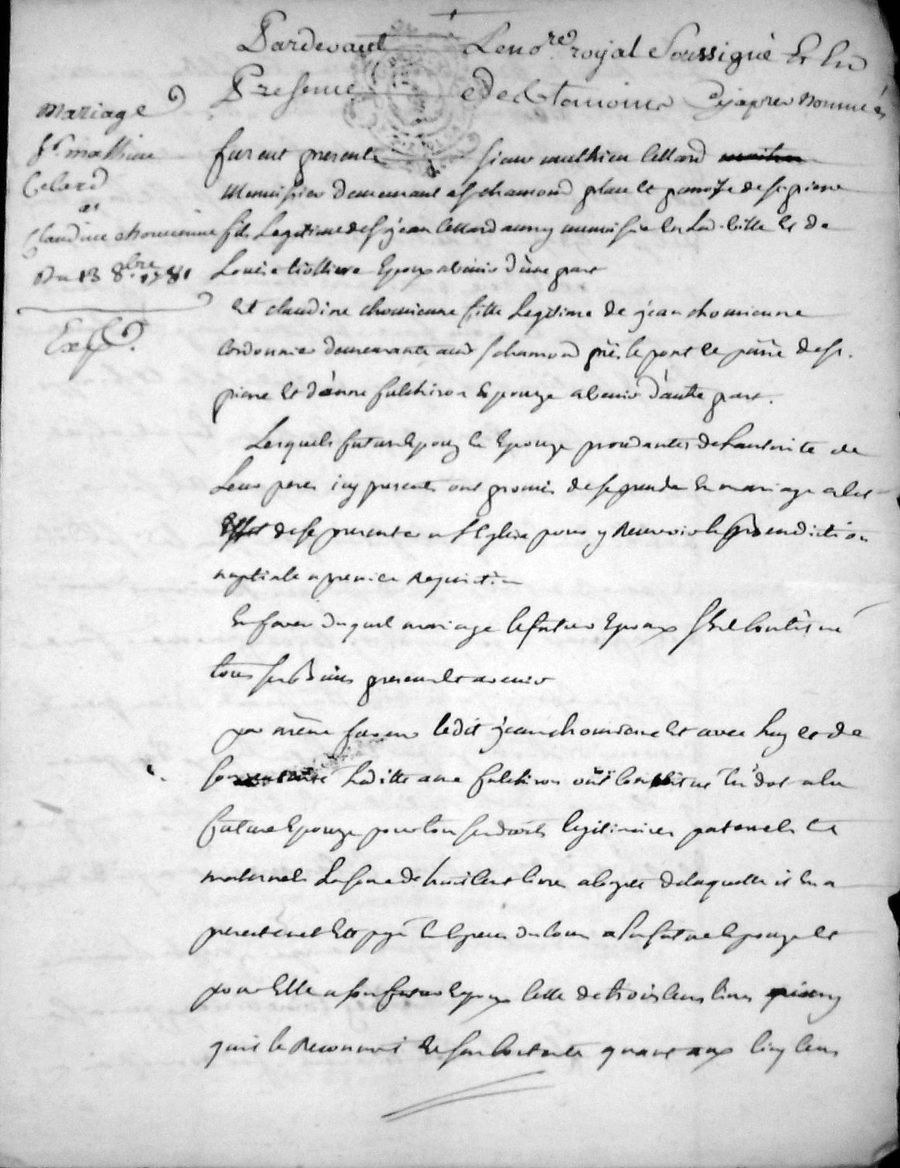 Pardevant Le no.re royal Soussigné Et En
Presence des temoins Cy apres nommés
mariage
Sr. mathieu
Celard
et
Claudine chomienne
Du 13 8bre 1781
Exp.
furent presents sieur mathieu Cellard
menuisier demeurant a St chamond place et paroisse de St pierre
fils Legitime de Sr jean Cellard aussy menuisier en Lad. ville et de
Louise Epoux a venir d'une part
et claudine chomienne fille Legitime de jean chomienne
Cordonnier demeurante aud. St chamond près le pont de St.
pierre Et d'anne fulchiron Epouze a venir d'autre part.
Lesquels futurs Epoux Et Epouze procedantes de L'autorité de
Leurs peres icy presents ont promis de se prendre En mariage a cet
Effet de se presenter a St Eglise pour y Recevoir la Benediction
nuptiale a premiere Requisition
En faveur duquel mariage le futur Epoux s'Est Constitué
tous ses Biens presents et avenir
par même faveur ledit jean chomienne et avec luy et de
son autorité Laditte anne fulchiron ont Constitué En dot a la
future Epouze pour tous ses droits legitimaires paternels Et
maternels La somme de huit Cent livres a Compte de laquelle il en a
presentement payé En Especes du Cours a la future Epouze et
pour Elle a son futur Epoux Celle de trois Cens livres
qui le Reconnoit Et s'en Contente quant aux Cinq Cens